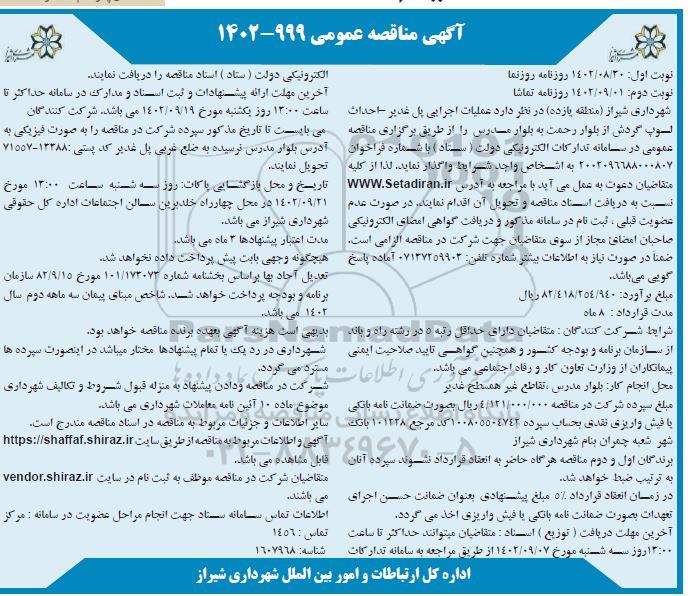 آگهی مناقصه عمومی ۹۹۹-۱۴۰۲
نوبت اول: ۱۴۰۲/۰۸/۳۰ روزنامه روزنما
نوبت دوم: ۱۴۰۲/۰۹/۰۱ روزنامه تماشا
شهرداری شیراز (منطقه یازده) در نظر دارد عملیات اجرایی پل غدیر –احداث
لوپ گردش از بلوار رحمت به بلوار مدرس را از طریق برگزاری مناقصه
عمومی در سامانه تدارکات الکترونیکی دولت ( ستاد ) با شماره فراخوان
۲۰۰۲۰۹۶۶۸۸۰۰۰۸۰۷ به اشخاص واجد شرایط واگذار نماید. لذا از کلیه
متقاضیان دعوت به عمل می آید با مراجعه به آدرس WWW.Setadiran.ir
نسبت به دریافت اسناد مناقصه و تحویل آن اقدام نمایند. در صورت عدم
عضویت قبلی ، ثبت نام در سامانه مذکور و دریافت گواهی امضای الکترونیکی
صاحبان امضائ مجاز از سوی متقاضیان جهت شرکت در مناقصه الزامی است.
ضمناً در صورت نیاز به اطلاعات بیشتر شماره تلفن: ۰۷۱۳۷۲۵۹۹۰۳ آماده پاسخ
گویی می‌باشد.
مبلغ برآورد: ۸۲/۴۱۸/۲۵۴/۹۴۰ ریال
مدت قرارداد : ۸ ماه
شرایط شرکت کنندگان : متقاضیان دارای حداقل رتبه ۵ در رشته راه و باند
از سازمان برنامه و بودجه کشور و همچنین گواهی تایید صلاحیت ایمنی
پیمانکاران از وزارت تعاون کار و رفاه اجتماعی می باشد.
محل انجام کار: بلوار مدرس ،تقاطع غیر همسطح غدیر
مبلغ سپرده شرکت در مناقصه ۴/۱۲۱/۰۰۰/۰۰۰ ریال بصورت ضمانت نامه بانکی
یا فیش واریزی نقدی بحساب سپرده ۱۰۰۸۰۵۵۰۴۷۴۲ کد مرجع ۱۰۱۲۲۸ بانک
شهر شعبه چمران بنام شهرداری شیراز
برندگان اول و دوم مناقصه هرگاه حاضر به انعقاد قرارداد نشوند سپرده آنان
به ترتیب ضبط خواهد شد.
در زمان انعقاد قرارداد ۵% مبلغ پیشنهادی بعنوان ضمانت حسن اجرای
تعهدات بصورت ضمانت نامه بانکی یا فیش واریزی اخذ می گردد.
آخرین مهلت دریافت ( توزیع ) اسناد : متقاضیان میتوانند حداکثر تا ساعت
۱۳:۰۰ روز سه شنبه مورخ ۱۴۰۲/۰۹/۰۷ از طریق مراجعه به سامانه تدارکات
الکترونیکی دولت ( ستاد ) اسناد مناقصه را دریافت نمایند.
آخرین مهلت ارائه پیشنهادات و ثبت اسناد و مدارک در سامانه حداکثر تا
ساعت ۱۳:۰۰ روز یکشنبه مورخ ۱۴۰۲/۰۹/۱۹ می باشد. شرکت کنندگان
می بایست تا تاریخ مذکور سپرده شرکت در مناقصه را به صورت فیزیکی به
آدرس بلوار مدرس نرسیده به ضلع غربی پل غدیر کد پستی :۱۳۳۸۸-۷۱۵۵۷
تحویل نمایند.
تاریخ و محل بازگشایی پاکات: روز سه شنبه ساعت ۱۳:۰۰ مورخ
۱۴۰۲/۰۹/۲۱ در محل چهارراه خلدبرین سالن اجتماعات اداره کل حقوقی
شهرداری شیراز می باشد.
مدت اعتبار پیشنهادها ۳ ماه می باشد.
هیچگونه وجهی بابت پیش پرداخت داده نخواهد شد.
تعدیل آحاد بها براساس بخشنامه شماره ۱۰۱/۱۷۳۰۷۳ مورخ ۸۲/۹/۱۵ سازمان
برنامه و بودجه پرداخت خواهد شد. شاخص مبنای پیمان سه ماهه دوم سال
۱۴۰۲ می باشد.
بدیهی است هزینه آگهی بعهده برنده مناقصه خواهد بود.
شهرداری در رد یک یا تمام پیشنهادها مختار میباشد در اینصورت سپرده ها
مسترد می گردد.
شرکت در مناقصه ودادن پیشنهاد به منزله قبول شروط و تکالیف شهرداری
موضوع ماده ۱۰ آئین نامه معاملات شهرداری می باشد.
سایر اطلاعات و جزئیات مربوط به مناقصه در اسناد مناقصه مندرج است.
آگهی و اطلاعات مربوط به مناقصه از طریق سایت https://shaffaf.shiraz.ir
قابل مشاهده می باشد.
متقاضیان شرکت در مناقصه موظف به ثبت نام در سایت vendor.shiraz.ir
می باشند.
اطلاعات تماس سامانه ستاد جهت انجام مراحل عضویت در سامانه : مرکز
تماس : ۱۴۵۶
شناسه: ۱۶۰۷۹۶۸
اداره کل ارتباطات و امور بین الملل شهرداری شیراز
ParsNamadData
۰۲۱-۸۸۳۴۹۶۷۰-۵